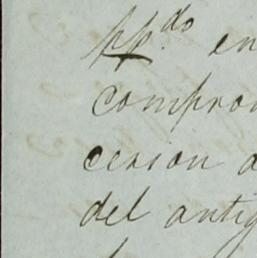 pp.do en
compro
cesion a
del antig